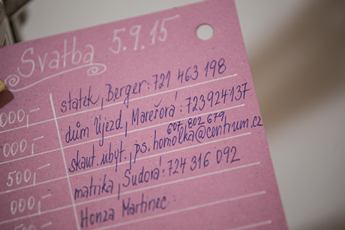 Svatba 5.9.15
statek, Berger: 721 463 198
000,-
dům Újezd, Marešová: 723924137
607 802 679
000,-
skaut. ubyt., ps.homolka@centrum.cz
500,-
matrika, Sudová: 724 316 092
000,-
Honza Martinec:
500,-